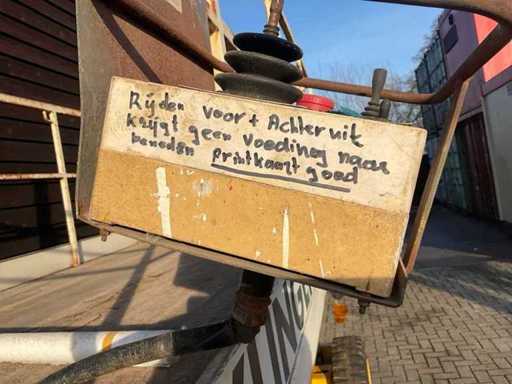 Rijden voor + Achteruit
krijgt geen voeding naar
beneden Printkaart goed